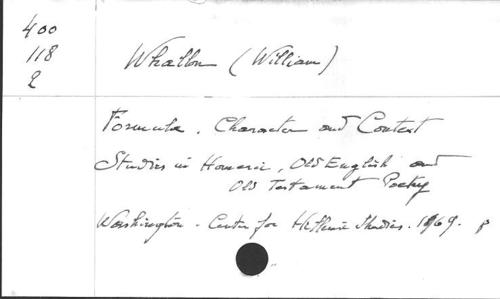 400
118
2
Whallon (William)
Formula, Character and Context
Studies in Homeric, Old English and
Old Testament Poetry
Washington - Center for Hellenic Studies. 1969.